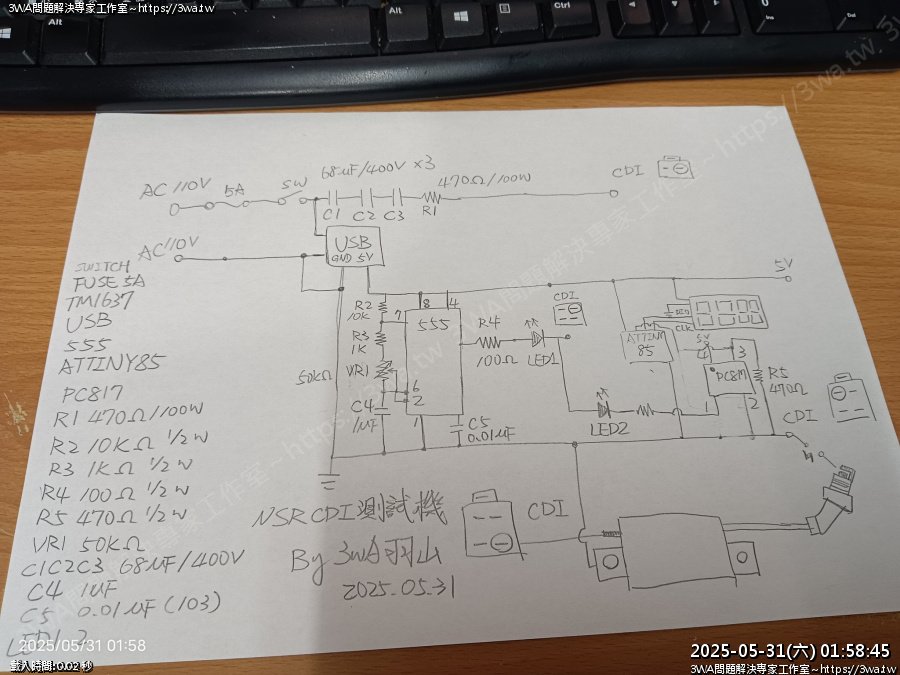 3WA問題解決專家工作室~https://3wa.tw
3WA問題解決專家工作室~https://3wa.tw
Alt
Alt
Ctrl
Alt
0
Ins
Del
3WA問題解決專家工作室~https://3wa.tw
68uF/400V ×3
AC 110V
5A
SW
470Ω/100W
CDI
C1
C2
C3
R1
AC 110V
USB
GND 5V
5V
SWITCH
FUSE 5A
TM1637
USB
555
ATTINY85
PC817
R1 470Ω/100W
R2 10KΩ 1/2W
R3 1KΩ 1/2W
R4 100Ω 1/2W
R5 470Ω 1/2W
VR1 50KΩ
C1C2C3 68uF/400V
C4 1uF
C5 0.01uF (103)
R2
10K
R3
1K
VR1
50KΩ
C4
1uF
7
8
4
555
6
2
1
C5
0.01uF
R4
100Ω
LED1
CDI
LED2
ATTINY
85
CLK
5V
4
3
PC817
1
2
R5
470Ω
CDI
CDI
NSR CDI測試機
By 3WA羽山
2025.05.31
2025/05/31 01:58
載入時間:0.02 秒
2025-05-31(六) 01:58:45
3WA問題解決專家工作室~https://3wa.tw